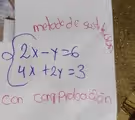 metodo de sustitución
a) { 2x - y = 6
4x + 2y = 3
con comprobación